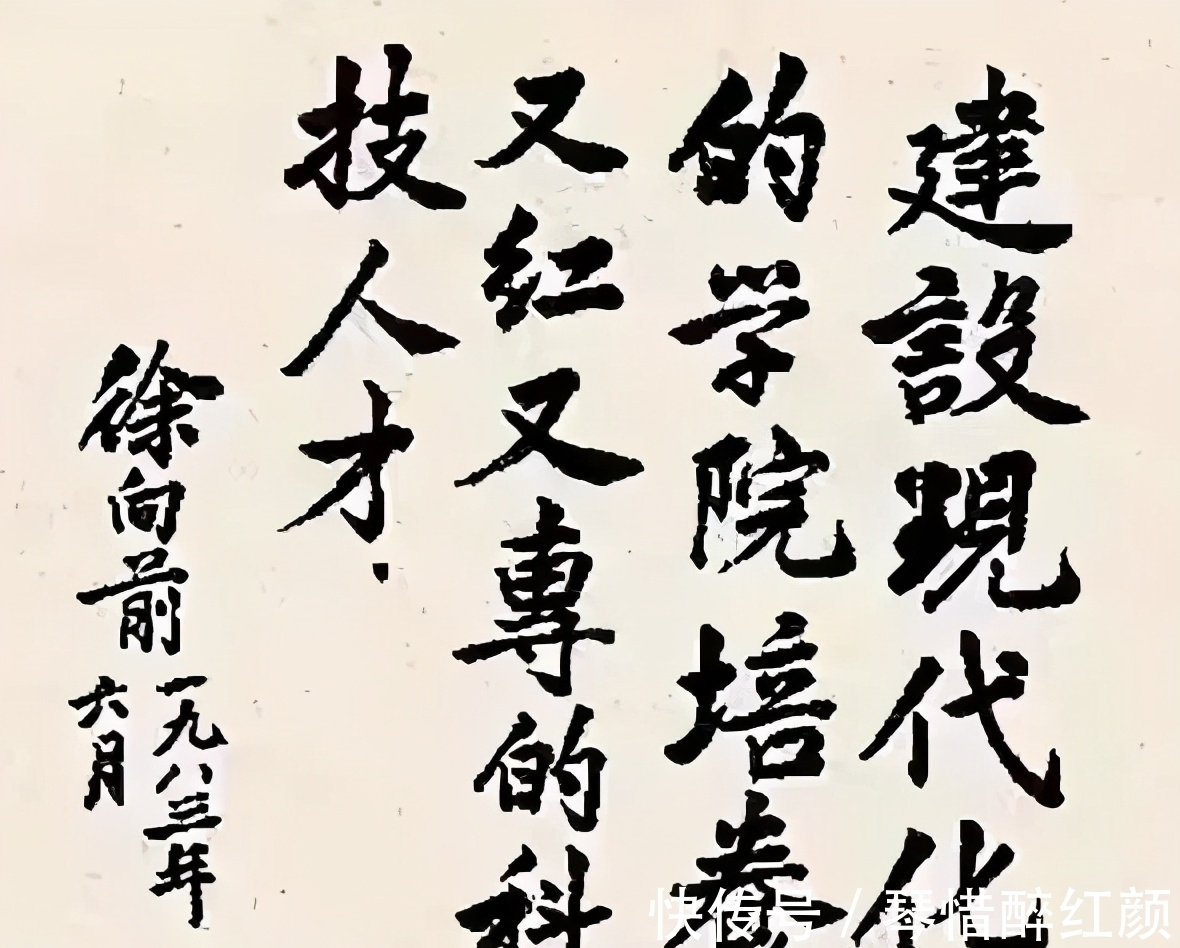 建設現代化
的学院培養
又红又專的科
技人才.
徐向前
一九八三年
六月
快传号/琴惜醉红颜